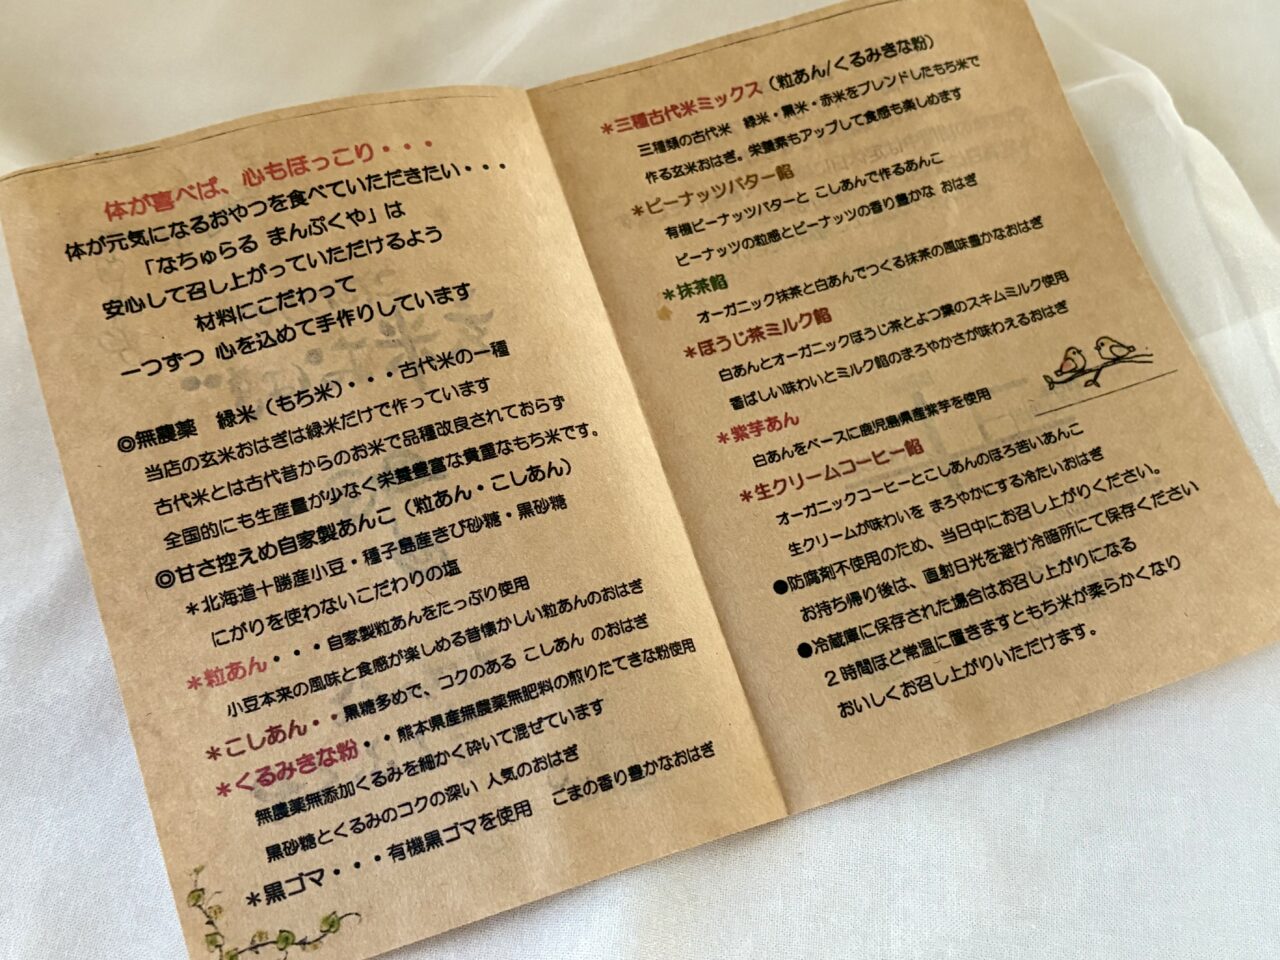 体が喜べば、心もほっこり・・・
体が元気になるおやつを食べていただきたい・・・
「なちゅらる まんぷくや」は
安心して召し上がっていただけるよう
材料にこだわって
一つずつ 心を込めて手作りしています
◎無農薬　緑米（もち米）・・・古代米の一種
当店の玄米おはぎは緑米だけで作っています
古代米とは古代昔からのお米で品種改良されておらず
全国的にも生産量が少なく栄養豊富な貴重なもち米です。
◎甘さ控えめ自家製あんこ（粒あん・こしあん）
＊北海道十勝産小豆・種子島産きび砂糖・黒砂糖
にがりを使わないこだわりの塩
＊粒あん・・・自家製粒あんをたっぷり使用
小豆本来の風味と食感が楽しめる昔懐かしい粒あんのおはぎ
＊こしあん・・黒糖多めで、コクのある こしあん のおはぎ
＊くるみきな粉・・熊本県産無農薬無肥料の煎りたてきな粉使用
無農薬無添加くるみを細かく砕いて混ぜています
黒砂糖とくるみのコクの深い 人気のおはぎ
＊黒ゴマ・・・有機黒ゴマを使用　ごまの香り豊かなおはぎ
＊三種古代米ミックス（粒あん/くるみきな粉）
三種類の古代米　緑米・黒米・赤米をブレンドしたもち米で
作る玄米おはぎ。栄養素もアップして食感も楽しめます
＊ピーナッツバター餡
有機ピーナッツバターと こしあんで作るあんこ
ピーナッツの粒感とピーナッツの香り豊かな おはぎ
＊抹茶餡
オーガニック抹茶と白あんでつくる抹茶の風味豊かなおはぎ
＊ほうじ茶ミルク餡
白あんとオーガニックほうじ茶とよつ葉のスキムミルク使用
香ばしい味わいとミルク餡のまろやかさが味わえるおはぎ
＊紫芋あん
白あんをベースに鹿児島県産紫芋を使用
＊生クリームコーヒー餡
オーガニックコーヒーとこしあんのほろ苦いあんこ
生クリームが味わいを まろやかにする冷たいおはぎ
●防腐剤不使用のため、当日中にお召し上がりください。
お持ち帰り後は、直射日光を避け冷暗所にて保存ください
●冷蔵庫に保存された場合はお召し上がりになる
２時間ほど常温に置きますともち米が柔らかくなり
おいしくお召し上がりいただけます。